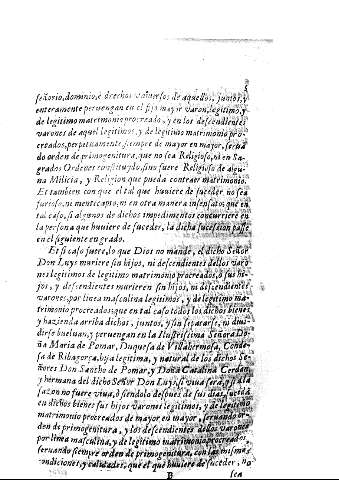 5
señorio, dominio, è drechos vniuersos de aquellos, juntos, y
enteramente peruengan en el fijo mayor varon, legitimo, y
de legitimo matrimonio procreado, y en los descendientes
varones de aquel legitimos, y de legitimo matrimonio pro-
creados, perpetuamente, siempre de mayor en mayor, serua-
do orden de primogenitura, que no sea Religioso, ni en Sa-
grados Ordenes constituydo, sino fuere Religioso de algu-
na Milicia, y Religion que pueda contraer matrimonio.
Et tambien con que el tal que huuiere de suceder no sea
furioso, ni mentecapto, ni en otra manera insensato; que en
tal caso, si algunos de dichos impedimentos concurriere en
la persona que huuiere de suceder, la dicha sucession passe
en el siguiente en grado.
Et si caso fuere, lo que Dios no mande, el dicho Señor
Don Luys muriere sin hijos, ni descendientes dellos varo-
nes legitimos de legitimo matrimonio procreados, ò sus hi-
jos, y descendientes murieren sin hijos, ni descendientes
varones, por linea masculina legitimos, y de legitimo ma-
trimonio procreados; que en tal caso todos los dichos bienes
y hazienda arriba dichos, juntos, y sin separarse, ni diui-
dirse bueluan, y peruengan en la Ilustrissima Señora Do-
ña Maria de Pomar, Duquesa de Villahermosa, Conde-
sa de Ribagorça, hija legitima, y natural de los dichos Se-
ñores Don Sancho de Pomar, y Doña Catalina Cerdan,
y hermana del dicho Señor Don Luys, si viua serà, y si à la
sazon no fuere viua, ò siendolo despues de sus dias, suceda
en dichos bienes sus hijos varones legitimos, y de legitimo
matrimonio procreados, de mayor en mayor, seruando or-
den de primogenitura, y los descendientes dellos varones
por linea masculina, y de legitimo matrimonio procreados,
seruando siempre orden de primogenitura, con las mismas
condiciones, y calidades, que el que huuiere de suceder, no
B sea